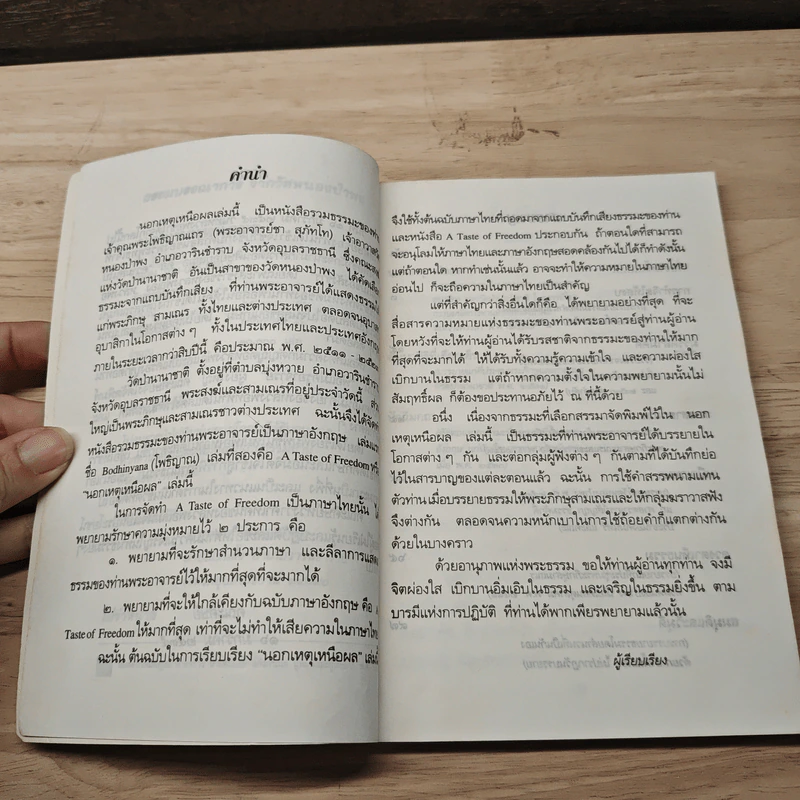 คำนำ
นอกเหตุเหนือผลเล่มนี้ เป็นหนังสือรวมธรรมะของท่าน
เจ้าคุณพระโพธิญาณเถร (พระอาจารย์ชา สุภัทโท) เจ้าอาวาสวัด
หนองป่าพง อำเภอวารินชำราบ จังหวัดอุบลราชธานี ซึ่งคณะสงฆ์
แห่งวัดป่านานาชาติ อันเป็นสาขาของวัดหนองป่าพง ได้คัดเลือก
ธรรมะจากแถบบันทึกเสียง ที่ท่านพระอาจารย์ได้แสดงธรรม
แก่พระภิกษุ สามเณร ทั้งไทยและต่างประเทศ ตลอดจนอุบาสก
อุบาสิกาในโอกาสต่าง ๆ ทั้งในประเทศไทยและประเทศอังกฤษ
ภายในระยะเวลากว่าสิบปีนี้ คือประมาณ พ.ศ. ๒๕๑๑ -
วัดป่านานาชาติ ตั้งอยู่ที่ตำบลบุ่งหวาย อำเภอวารินชำราบ
จังหวัดอุบลราชธานี พระสงฆ์และสามเณรที่อยู่ประจำวัดนี้ ส่วน
ใหญ่เป็นพระภิกษุและสามเณรชาวต่างประเทศ ฉะนั้นจึงได้จัดทำ
หนังสือรวมธรรมะของท่านพระอาจารย์เป็นภาษาอังกฤษ เล่มแรก
ชื่อ Bodhinyana (โพธิญาณ) เล่มที่สองคือ A Taste of Freedom
"นอกเหตุเหนือผล" เล่มนี้
ในการจัดทำ A Taste of Freedom เป็นภาษาไทยนั้น ได้
พยายามรักษาความมุ่งหมายไว้ ๒ ประการ คือ
๑. พยายามที่จะรักษาสำนวนภาษา และลีลาการแสดง
ธรรมของท่านพระอาจารย์ไว้ให้มากที่สุดที่จะมากได้
๒. พยายามที่จะให้ใกล้เคียงกับฉบับภาษาอังกฤษ คือ A
Taste of Freedom ให้มากที่สุด เท่าที่จะไม่ทำให้เสียความในภาษาไทย
ฉะนั้น ต้นฉบับในการเรียบเรียง "นอกเหตุเหนือผล" เล่มนี้
จึงใช้ทั้งต้นฉบับภาษาไทยที่ถอดมาจากแถบบันทึกเสียงธรรมะของท่าน
และหนังสือ A Taste of Freedom ประกอบกัน ถ้าตอนใดที่สามารถ
จะอนุโลมให้ภาษาไทยและภาษาอังกฤษสอดคล้องกันไปได้ก็ทำดังนั้น
แต่ถ้าตอนใด หากทำเช่นนั้นแล้ว อาจจะทำให้ความหมายในภาษาไทย
อ่อนไป ก็จะถือความในภาษาไทยเป็นสำคัญ
แต่ที่สำคัญกว่าสิ่งอื่นใดก็คือ ได้พยายามอย่างที่สุด ที่จะ
สื่อสารความหมายแห่งธรรมะของท่านพระอาจารย์สู่ท่านผู้อ่าน
โดยหวังที่จะให้ท่านผู้อ่านได้รับรสชาติจากธรรมะของท่านให้มาก
ที่สุดที่จะมากได้ ให้ได้รับทั้งความรู้ความเข้าใจ และความผ่องใส
เบิกบานในธรรม แต่ถ้าหากความตั้งใจในความพยายามนั้นไม่
สัมฤทธิ์ผล ก็ต้องขอประทานอภัยไว้ ณ ที่นี้ด้วย
อนึ่ง เนื่องจากธรรมะที่เลือกสรรมาจัดพิมพ์ไว้ใน นอก
เหตุเหนือผล เล่มนี้ เป็นธรรมะที่ท่านพระอาจารย์ได้บรรยายใน
โอกาสต่าง ๆ กัน และต่อกลุ่มผู้ฟังต่าง ๆ กันตามที่ได้บันทึกย่อ
ไว้ในสารบาญของแต่ละตอนแล้ว ฉะนั้น การใช้คำสรรพนามแทน
ตัวท่าน เมื่อบรรยายธรรมให้พระภิกษุสามเณรและให้กลุ่มฆราวาสฟัง
จึงต่างกัน ตลอดจนความหนักเบาในการใช้ถ้อยคำก็แตกต่างกัน
ด้วยในบางคราว
ด้วยอานุภาพแห่งพระธรรม ขอให้ท่านผู้อ่านทุกท่าน จงมี
จิตผ่องใส เบิกบานอิ่มเอิบในธรรม และเจริญในธรรมยิ่งขึ้น ตาม
บารมีแห่งการปฏิบัติ ที่ท่านได้พากเพียรพยายามแล้วนั้น
ผู้เรียบเรียง